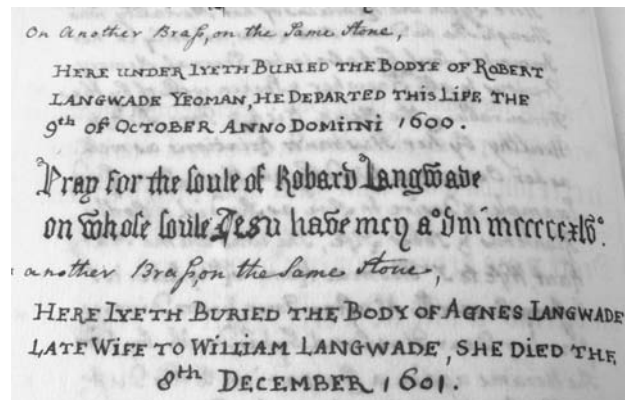 On Another Braſs, on the Same Stone,
HERE UNDER LYETH BURIED THE BODYE OF ROBERT
LANGWADE YEOMAN, HE DEPARTED THIS LIFE THE
9th OF OCTOBER ANNO DOMIINI 1600.
Pray for the ſoule of Robard Langwade
on whoſe ſoule Jeſu have mcy a° dni mcccccxlv°.
another Braſs, on the Same Stone,
HERE LYETH BURIED THE BODY OF AGNES LANGWADE
LATE WIFE TO WILLIAM LANGWADE, SHE DIED THE
8th DECEMBER 1601.